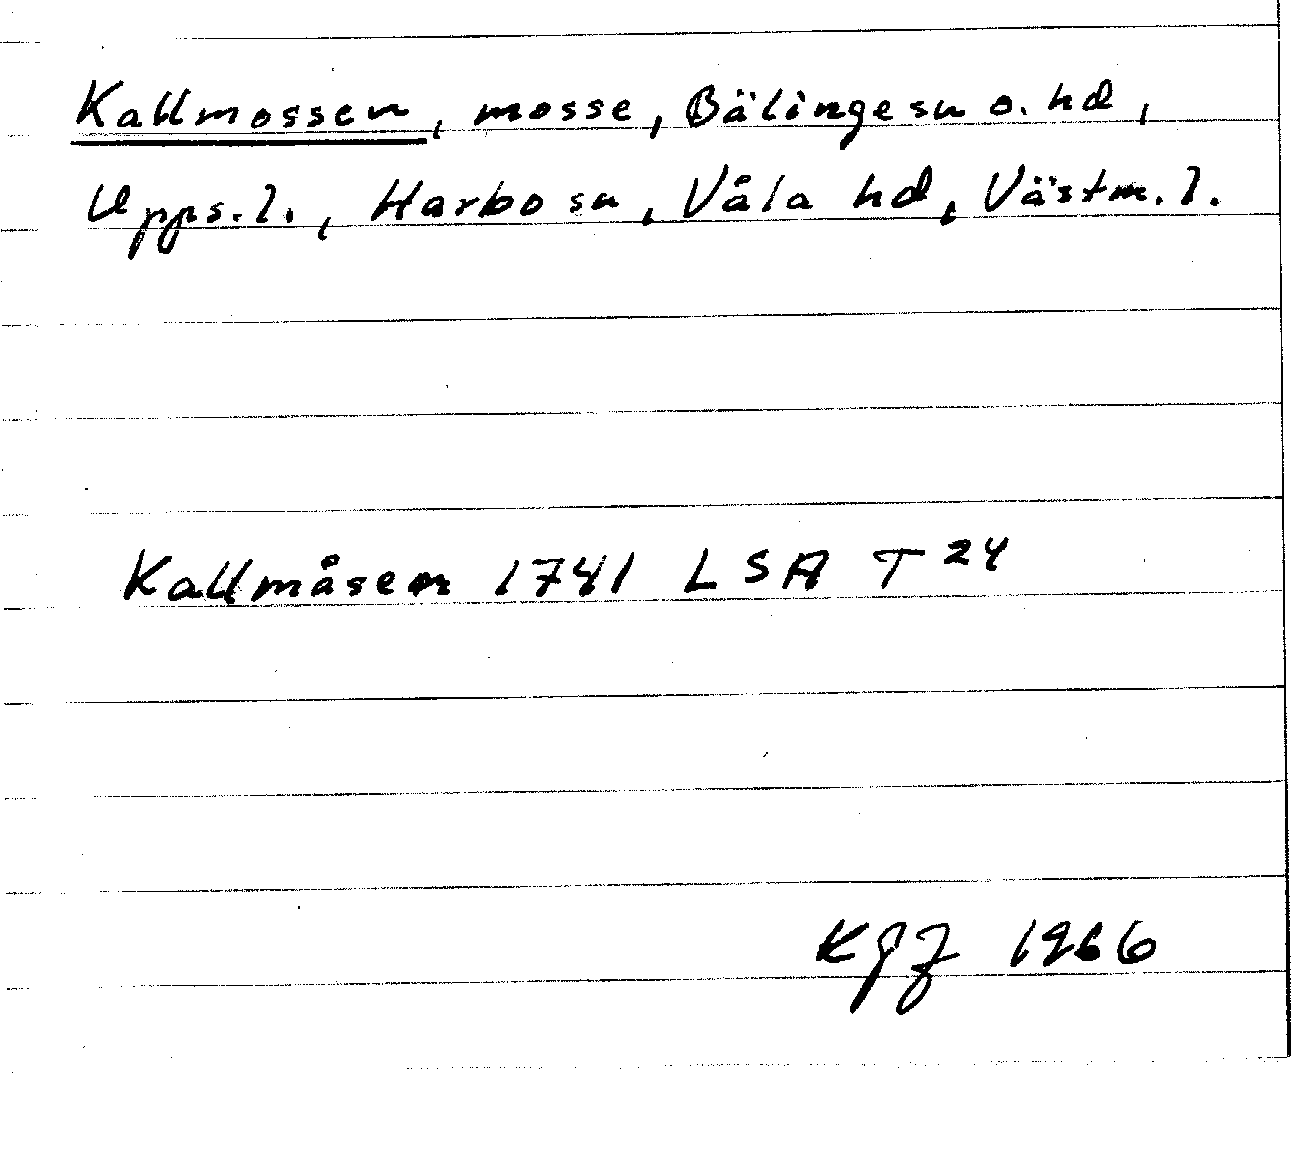 Kallmossen, mosse, Bälinge sn o. hd,
Upps. l., Harbo sn, Våla hd, Västm. l.
Kallmåsen 1741 LSA T 24
1966